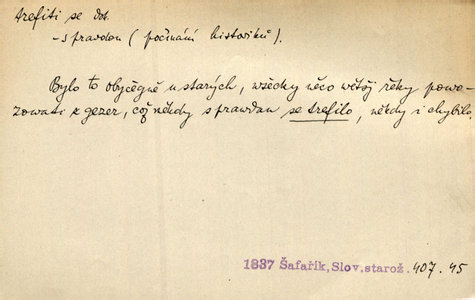 trefiti se dok.
- s prawdou (počínání historiků).
Bylo to obyčegně u starých, wšecky něco wětšj řeky powo-
zowati z gezer, což někdy s prawdau se trefilo, někdy i chybilo.
1837 Šafařik, Slov. starož. 407. 45